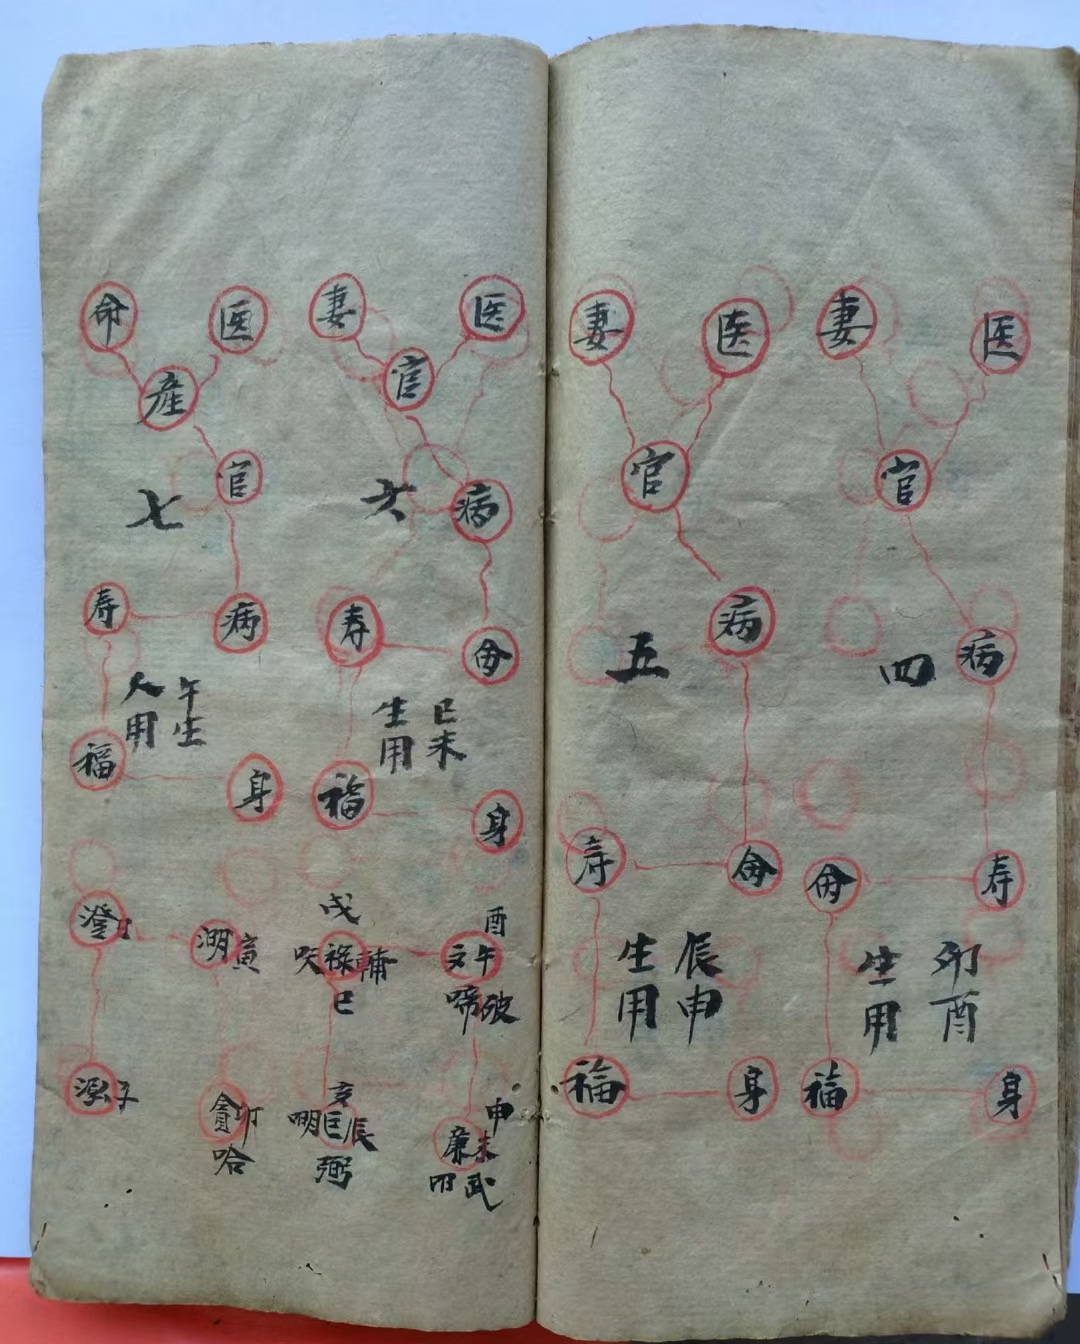 妻 医
官
病
四
寿
卯酉
生用
福 身
妻 医
官
病
五
寿
辰申
生用
福 身
妻 医
官
六 病
寿
巳未
生用
福 身
命 医
産
官
七
寿 病
午生
人用
福 身
酉
午
破
戌
祿
輔
巳
寅
申
廉
未
武
亥
辰
弼
卯
哈
子